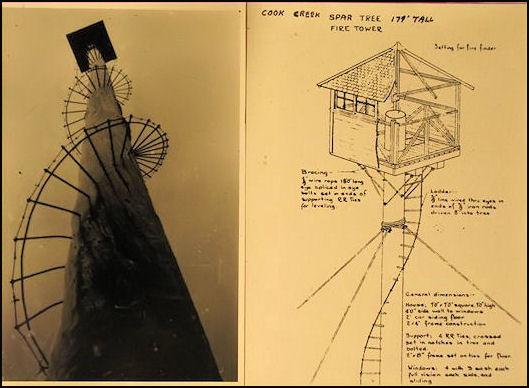 COOK CREEK SPAR TREE 179' TALL
FIRE TOWER
Setting for fire finder
Bracing-
wire rope 150' long
eye spliced in eye
bolts set in ends of
supporting RR Ties
for leveling.
Ladder-
line wired thru eyes in
ends of iron rods
driven 8" into tree
General dimensions-
House; square, high
40" side wall to windows
2" car siding floor
2"x4" frame construction
Support: 4 RR Ties, crossed
set in notches in tree and
bolted.
2"x8" frame set on ties for floor.
Windows: 4 with 3 sash each
full vision each side, and
sliding